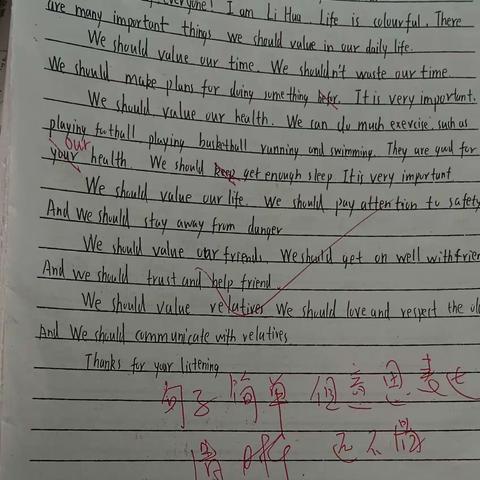 everyone! I am Li Hua. Life is colourful. There
are many important things we should value in our daily life.
We should value our time. We shouldn't waste our time.
We should make plans for doing something befor. It is very important.
We should value our health. We can do much exercise. such as
playing football playing basketball running and swimming. They are good for
our
your health We should keep get enough sleep It is very important
We should value our life. We should pay attention to safety
And we should stay away from danger
We should value our friends. We should get on well with frien
And we should trust and help friend.
We should value relatives We should love and respect the ol
And We should communicate with relatives
Thanks for your listening
句子简单 但意思表达
清晰 还不错